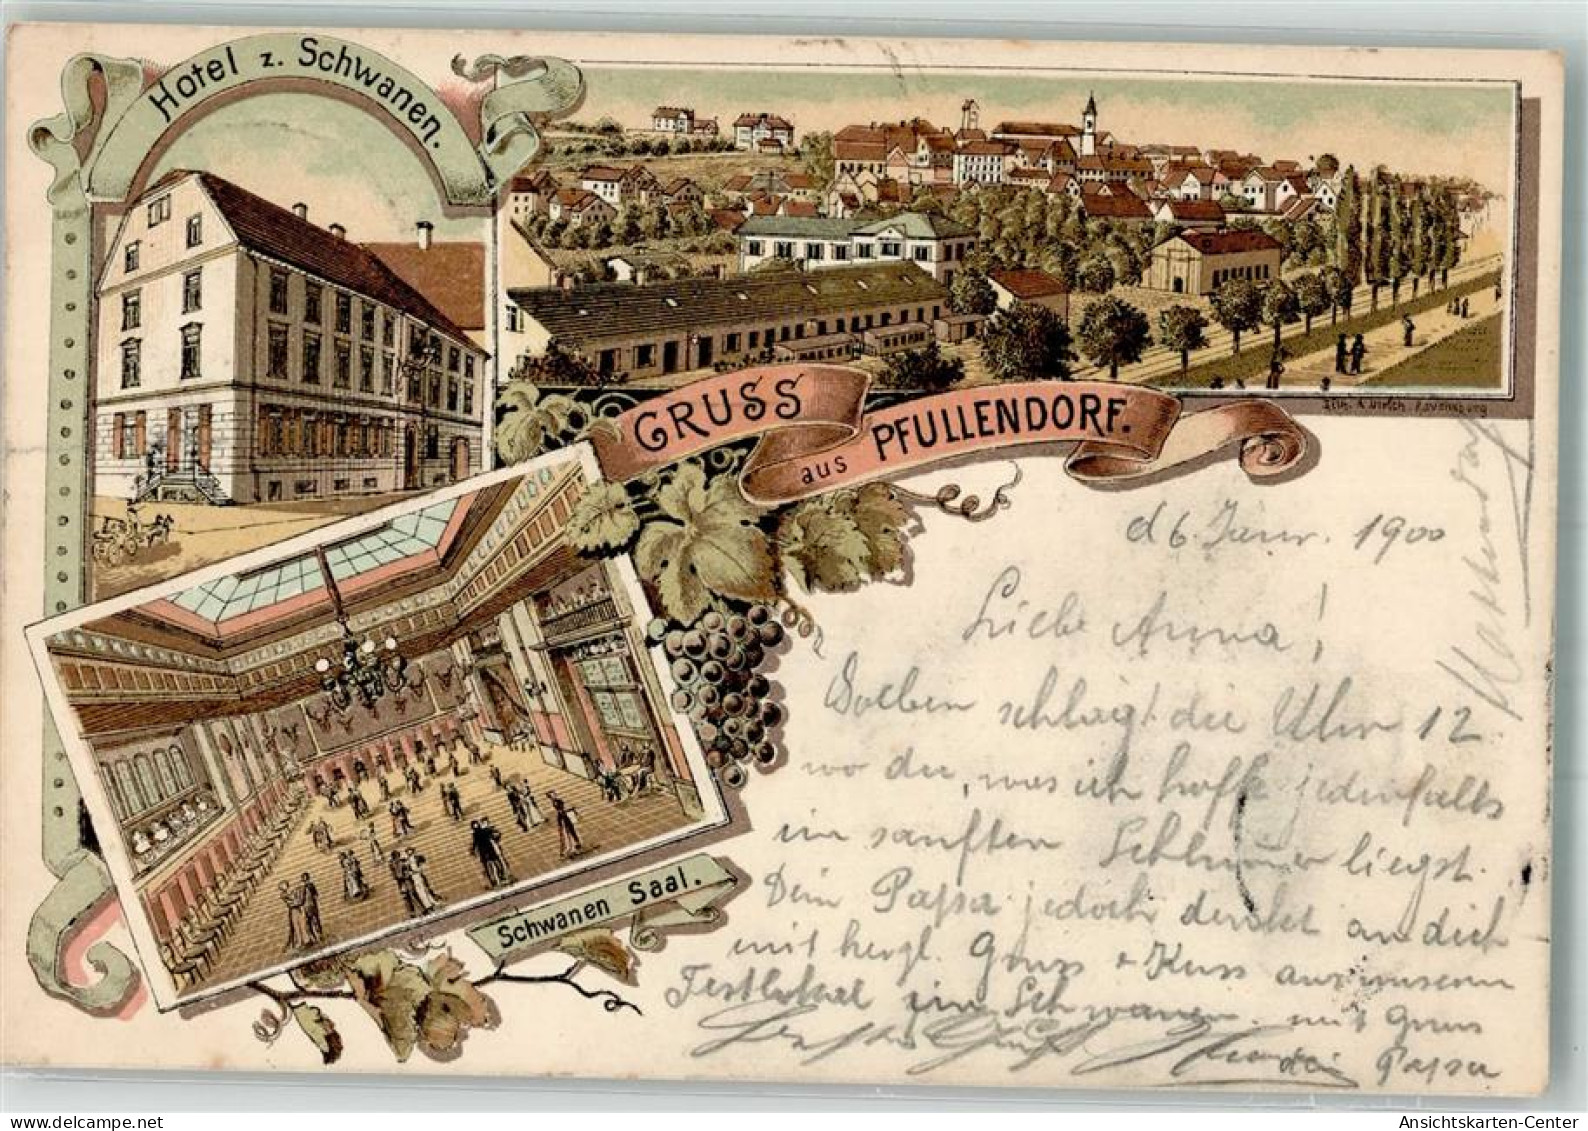 Hotel z. Schwanen.
GRUSS
aus PFULLENDORF.
Lith. A. Ulrich, Ravensburg
Schwanen Saal.
d 6. Janr. 1900
Liebe Anna!
Soeben schlägt die Uhr 12
wo du, was ich hoffe jedenfalls
im sanften Schlummer liegst.
Dein Papa jedoch denket an dich
mit herzl. Gruss + Kuss aus unserm
Festlokal im Schwanen. mit Gruss
dein Papa
Ansichtskarten-Center